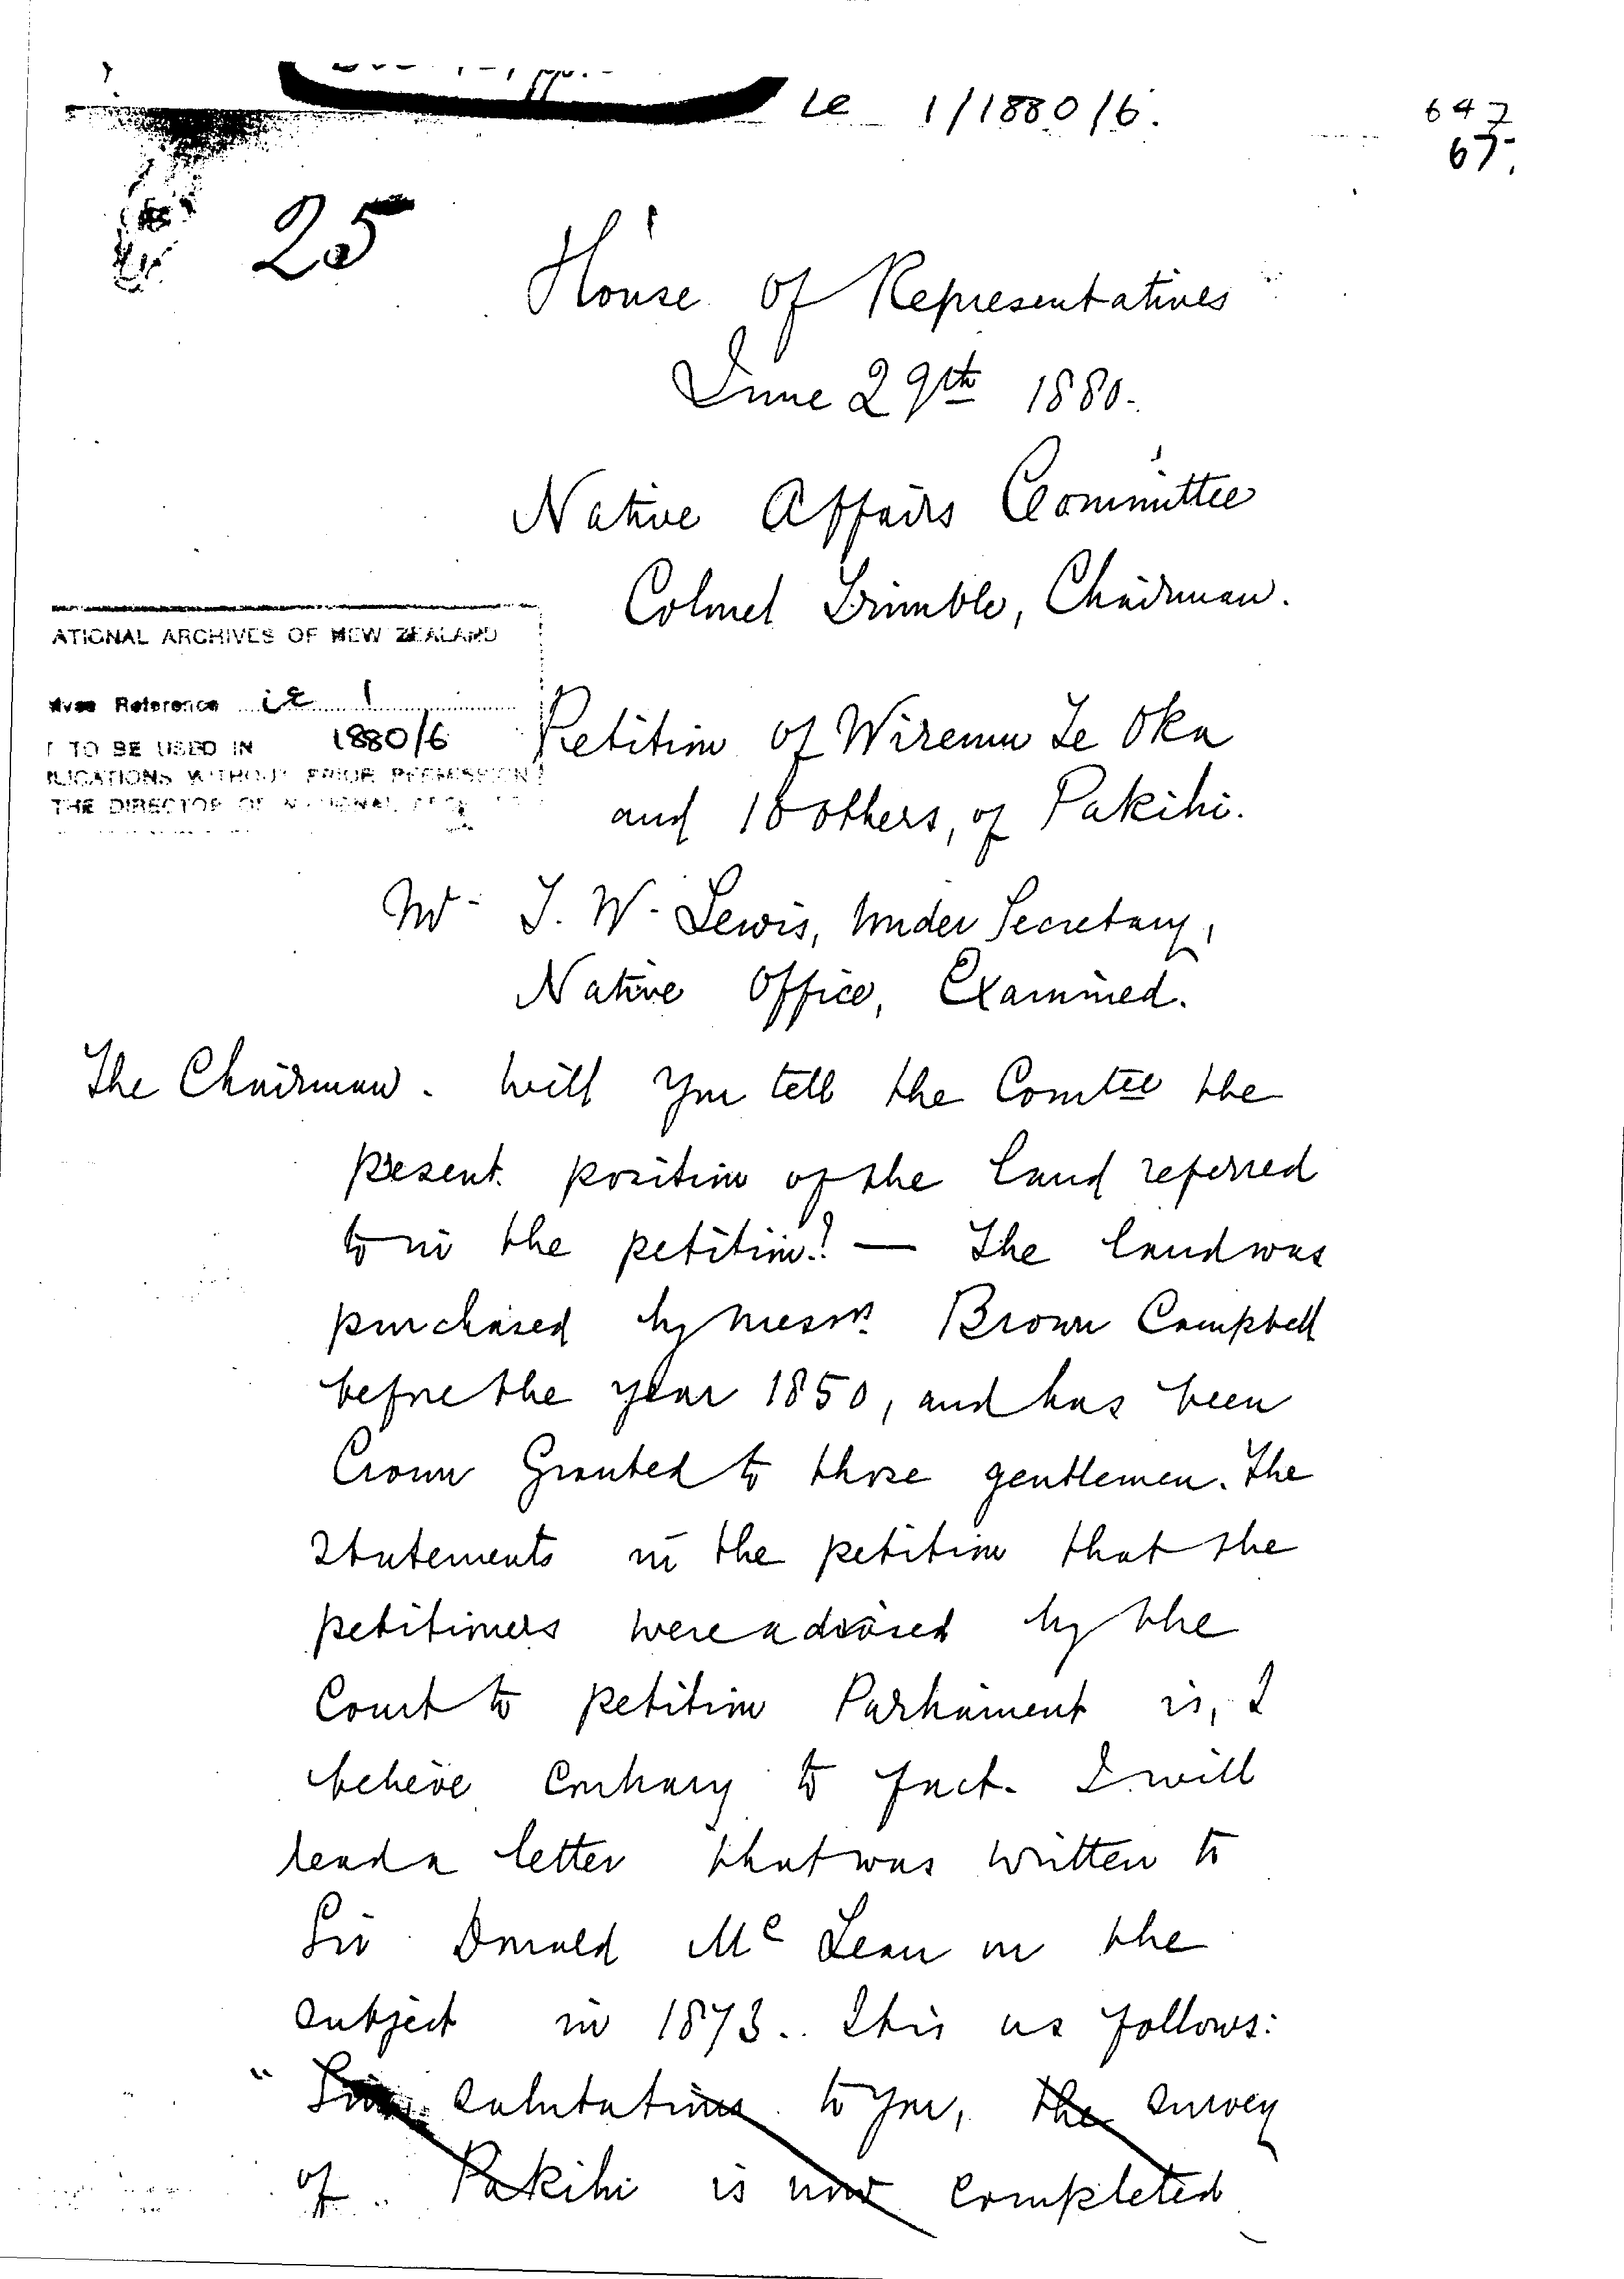 Le 1/1880/6.
647
67.
25
House of Representatives
June 29th 1880.
Native Affairs Committee
Colonel Trimble, Chairman.
ATIONAL ARCHIVES OF NEW ZEALAND
ives Reference Le 1
1880/6
T TO BE USED IN
BLICATIONS WITHOUT PRIOR PERMISSION
THE DIRECTOR OF NATIONAL
Petition of Wiremu Te Oka
and 16 others, of Pakihi.
Mr T. W. Lewis, Under Secretary,
Native Office, Examined.
The Chairman. Will you tell the Comtee the
present position of the land referred
to in the petition? — The land was
purchased by Messrs Brown Campbell
before the year 1850, and has been
Crown Granted to those gentlemen. The
statements in the petition that the
petitioners were advised by the
Court to petition Parliament is, I
believe contrary to fact. I will
read a letter that was written to
Sir Donald Mc Lean on the
subject in 1873. It is as follows:
" Sir salutations to you, the survey
of Pakihi is now completed